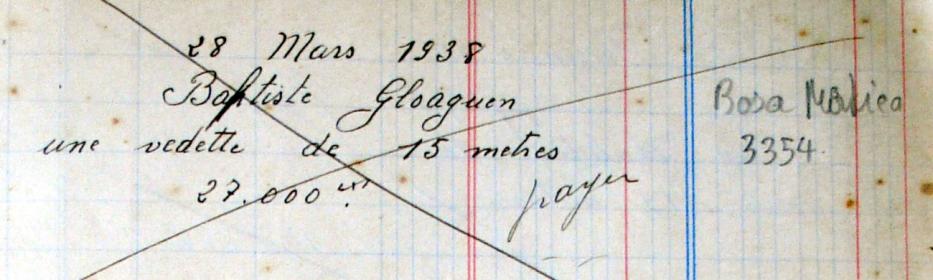 28 Mars 1938
Baptiste Gloaguen
une vedette de 15 metres
27.000
payer
Rosa
3354